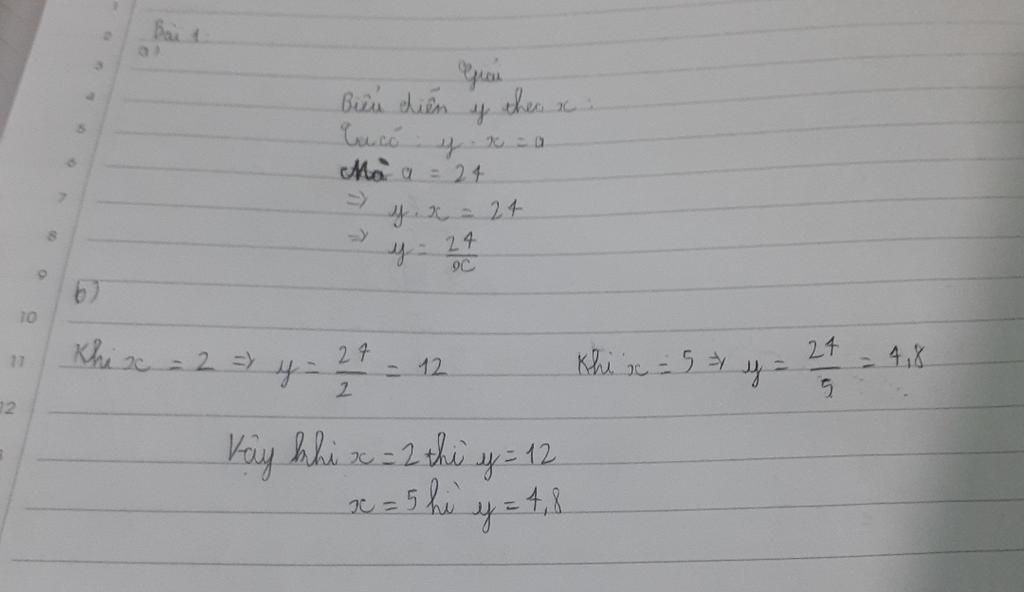 Bài 1:
a)
Giải
Biểu diễn y theo x:
Ta có: y . x = a
Mà a = 24
=> y . x = 24
=> y = 24/x
b)
Khi x = 2 => y = 24/2 = 12 Khi x = 5 => y = 24/5 = 4,8
Vậy khi x = 2 thì y = 12
x = 5 hì y = 4,8
1
2
3
4
5
6
7
8
9
10
11
12